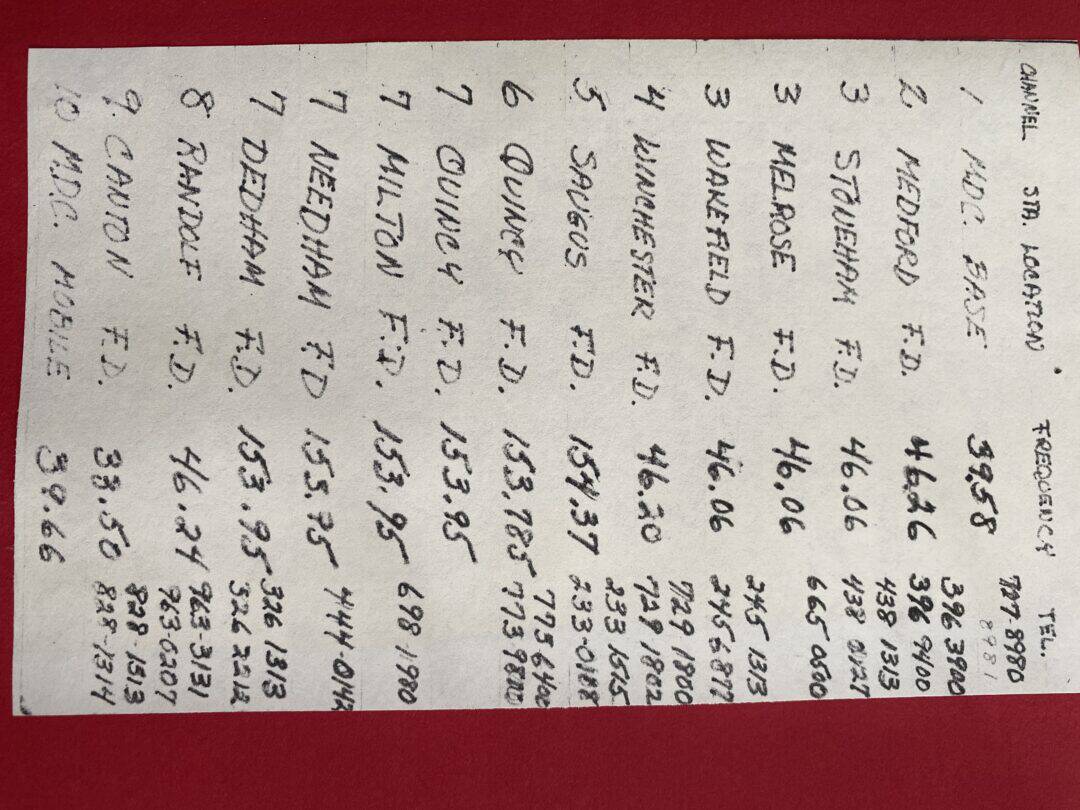 CHANNEL STA. LOCATION FREQUENCY TEL.
727-8980
8981
1 M.D.C. BASE 39.58
396 3900
2 MEDFORD F.D. 46.26 396 9400
438 1313
3 STONEHAM F.D. 46.06 438 0127
3 MELROSE F.D. 46.06 665 0500
245 1313
3 WAKEFIELD F.D. 46.06 245 6877
729 1800
4 WINCHESTER F.D. 46.20 729 1802
233 1575
5 SAUGUS F.D. 154.37 233-0188
773 6400
6 QUINCY F.D. 153.785 773 9800
7 QUINCY F.D. 153.95
7 MILTON F.D. 153.95 698 1900
7 NEEDHAM F.D 153.95 444-0142
326 1313
7 DEDHAM F.D. 153.95 326 2212
8 RANDOLF F.D. 46.24 963-3131
963-0207
828-1313
9. CANTON F.D. 33.50 828-1314
10 M.D.C. MOBILE 39.66